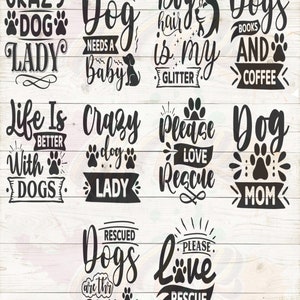 CRAZY
DOG
LADY
Dog
NEEDS A
Baby
Dog
hair
is my
GLITTER
Dogs
BOOKS
AND
COFFEE
Life Is
BETTER
With
DOGS
Crazy
dog
LADY
Please
LOVE
Rescue
Dog
MOM
RESCUED
Dogs
are the
PLEASE
Love
RESCUE